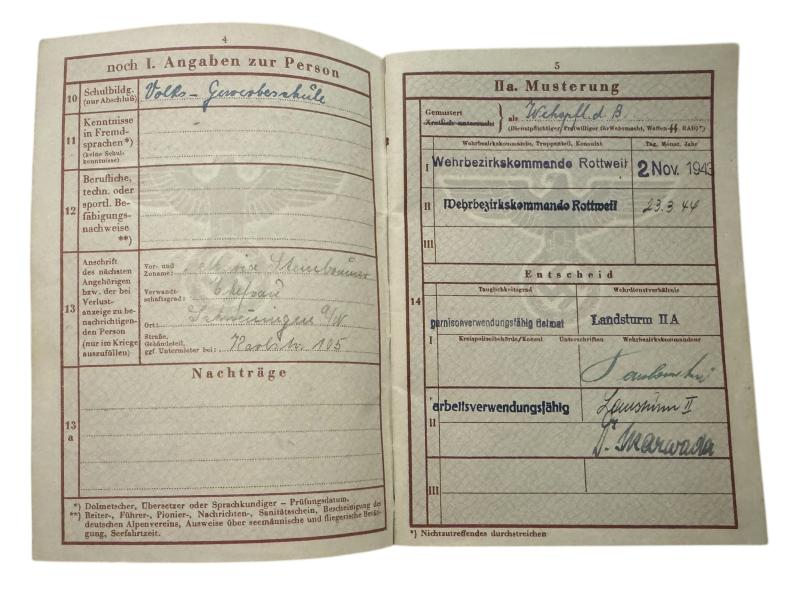 4
noch I. Angaben zur Person
10 Schulbildg. (nur Abschluß)
Volks- Gewerbeschule
11 Kenntnisse in Fremd-
sprachen*)
(keine Schul-
kenntnisse)
12 Berufliche,
techn. oder
sportl. Be-
fähigungs-
nachweise
**)
13 Anschrift
des nächsten
Angehörigen
bzw. der bei
Verlust-
anzeige zu be-
nachrichtigen-
den Person
(nur im Kriege
auszufüllen)
Vor- und
Zuname:
Verwandt-
schaftsgrad: Ehefrau
Ort: Schwenningen a/N
Straße,
Gebäudeteil,
ggf. Untermieter bei: Karlstr. 105
Nachträge
13
a
*) Dolmetscher, Übersetzer oder Sprachkundiger – Prüfungsdatum.
**) Reiter-, Führer-, Pionier-, Nachrichten-, Sanitätsschein, Bescheinigung des
deutschen Alpenvereins, Ausweise über seemännische und fliegerische Befähi-
gung, Seefahrtzeit.
5
IIa. Musterung
Gemustert
Ärztlich untersucht
als Wehrpfl. d. B.
(Dienstpflichtiger, Freiwilliger für Wehrmacht, Waffen-SS RAD)*)
Wehrbezirkskommando, Truppenteil, Konsulat
Tag, Monat, Jahr
I Wehrbezirkskommando Rottweil 2 Nov. 1943
II Wehrbezirkskommando Rottweil 23.3.44
III
Entscheid
14
Tauglichkeitsgrad
Wehrdienstverhältnis
garnisonverwendungsfähig Heimat
Landsturm II A
I Kreispolizeibehörde/Konsul Unterschriften Wehrbezirkskommandeur
arbeitsverwendungsfähig
Landsturm II
II
III
*) Nichtzutreffendes durchstreichen